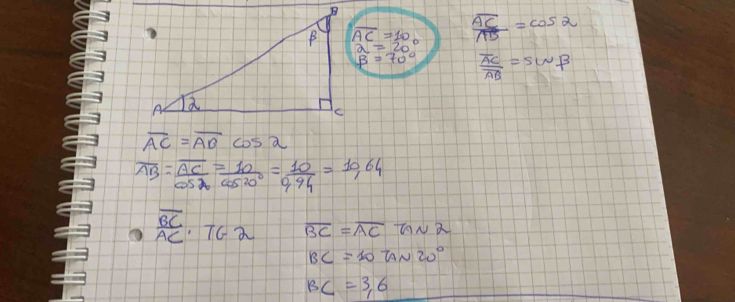 B
β
A α
C
AC = 10
α = 20°
β = 70°
AC/AB = cos α
AC/AB = sin β
AC = AB cos α
AB = AC/cos α = 10/cos 20° = 10/0,94 = 10,64
BC/AC · TG α
BC = AC TAN α
BC = 10 TAN 20°
BC = 3,6